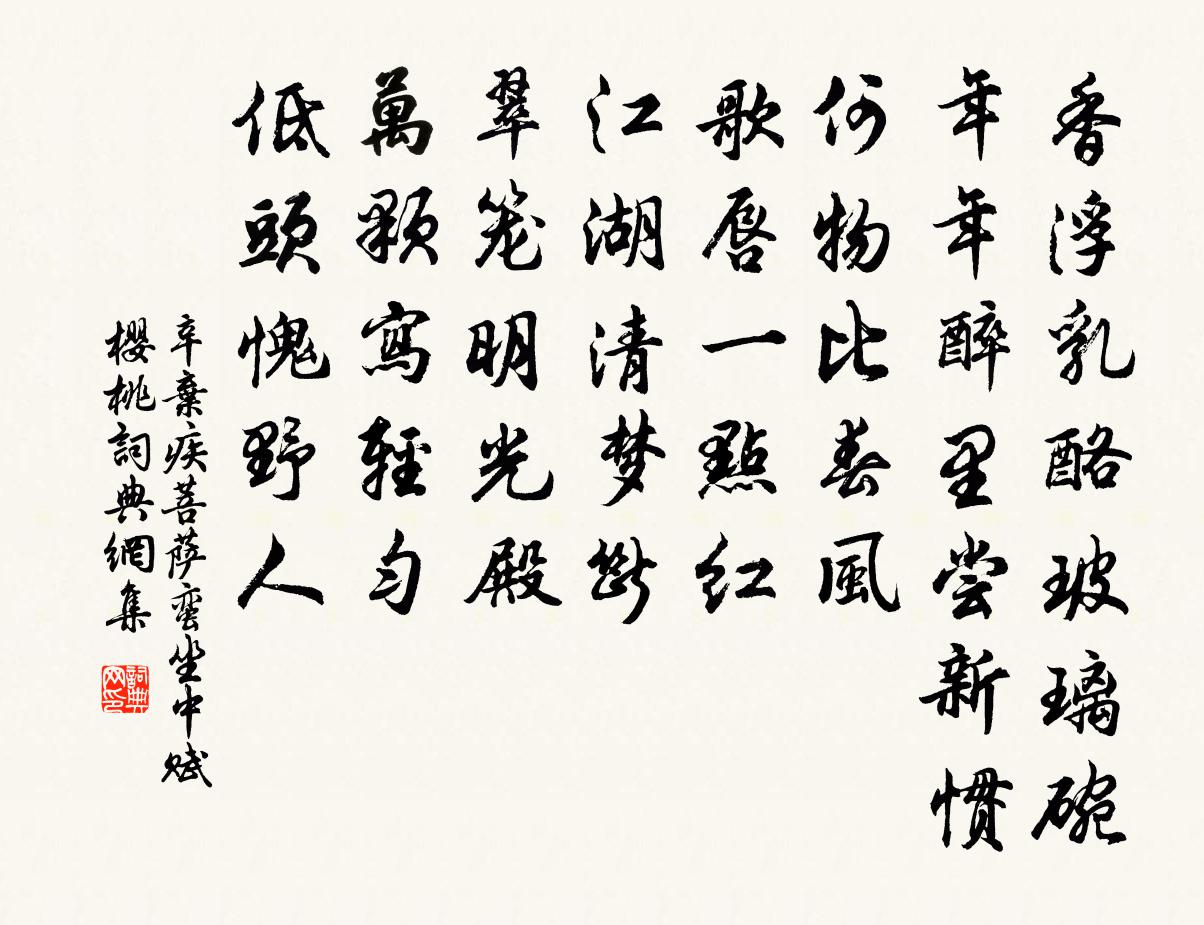 香浮乳酪玻璃碗
年年醉里尝新惯
何物比春風
歌唇一點红
江湖清梦斷
翠笼明光殿
萬顆寫輕匀
低頭愧野人
辛棄疾菩萨蛮坐中赋
櫻桃詞典網集
詞典网印